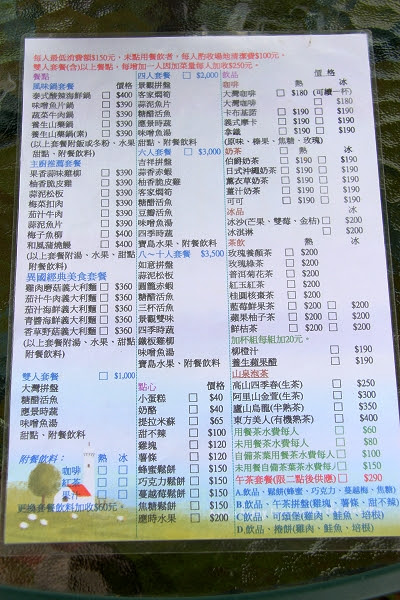 每人最低消費額$150元，未點用餐飲者，每人酌收場地清潔費$100元。
雙人套餐(含)以上餐點，每增加一人因加菜量每人加收$250元。
餐點
風味鍋套餐 價格
泰式酸辣海鮮鍋 □ $400
味噌魚片鍋 □ $390
蔬菜牛肉鍋 □ $390
養生山藥鍋 □ $390
養生山藥鍋(素) □ $390
(以上套餐附飯或冬粉、水果
甜點、附餐飲料)
主廚推薦套餐
果香蒜味雞柳 □ $390
柚香脆皮雞 □ $390
蒜泥松板 □ $390
梅菜扣肉 □ $390
茄汁牛肉 □ $390
蒜泥魚片 □ $390
梅子魚柳 □ $400
和風豬燒饅 □ $400
(以上套餐附湯、水果、甜點
附餐飲料)
異國經典美食套餐
雞肉磨菇義大利麵 □ $360
茄汁牛肉義大利麵 □ $360
茄汁海鮮義大利麵 □ $360
青醬海鮮義大利麵 □ $360
香草野菇義大利麵 □ $360
(以上套餐附湯、水果、甜點
附餐飲料)
雙人套餐 □ $1,000
大灣拼盤
糖醋活魚
應景時蔬
味噌魚湯
甜點、附餐飲料
附餐飲料： 熱 冰
咖啡 □ □
紅茶 □ □
果汁 □
更換套餐飲料加收$60元。
四人套餐 □ $2,000
景觀拼盤
客家燜筍
蒜泥魚片
客家燜肉
糖醋活魚
應景時蔬
味噌魚湯
水果、甜點、附餐飲料
六人套餐 □ $3,000
吉祥拼盤
蒜香赤蝦
柚香脆皮雞
客家燜肉
糖醋活魚
豆瓣活魚
味噌魚湯
四季時蔬
客家燜筍
寶島水果、附餐飲料
八～十人套餐 $3,500
如意拼盤
蒜泥松板
糖醋活魚
三杯活魚
景觀雙味
四季時蔬
鐵板雞柳
味噌魚湯
寶島水果、附餐飲料
點心 價格
小蛋糕 □ $40
奶酪 □ $40
提拉米蘇 □ $65
甜不辣 □ $100
雞塊 □ $120
薯條 □ $120
蜂蜜鬆餅 □ $150
巧克力鬆餅 □ $150
蔓越莓鬆餅 □ $150
焦糖鬆餅 □ $150
應時水果 □ $200
飲品 價格
咖啡 熱 冰
大灣咖啡 □ $180 (可續一杯)
大灣咖啡 □ $180
卡布基諾 □ $190 □ $190
義式摩卡 □ $190 □ $190
拿鐵 □ $190 □ $190
(原味、榛果、焦糖、玫瑰)
奶茶
伯爵奶茶 □ $190 □ $190
日式沖繩奶茶 □ $190 □ $190
薰衣草奶茶 □ $190 □ $190
薑汁奶茶 □ $190 □ $190
可可 □ $190 □ $190
冰品
冰沙(芒果、雙莓、金桔) □ $200
冰淇淋 □ $200
茶飲 熱 冰
玫瑰養顏茶 □ $200
玫瑰綠茶 □ $200
普洱菊花茶 □ $200
紅玉紅茶 □ $200
桂圓棗茶 □ $200
藍莓鮮果茶 □ $200 □ $200
蘋果柚子茶 □ $200 □ $200
鮮桔茶 □ $200 □ $200
加杯組每組加20元。
柳橙汁 □ $190
養生蘋果醋 □ $190
山泉泡茶
高山四季春(生茶) □ $250
阿里山金萱(生茶) □ $300
廬山烏龍(半熟茶) □ $350
東方美人(有機熟茶) □ $400
用餐茶水費每人 □ $60
未用餐茶水費每人 □ $80
自備茶葉用餐茶水費每人 □ $100
未用餐自備茶葉茶水費每人 □ $150
午茶套餐(限二點後供應) □ $290
A.飲品、鬆餅(蜂蜜、巧克力、蔓越莓、焦糖)
B.飲品、午茶拼盤(雞塊、薯條、甜不辣)
C.飲品、可頌堡(雞肉、鮭魚、培根)
D.飲品、捲餅(雞肉、鮭魚、培根)